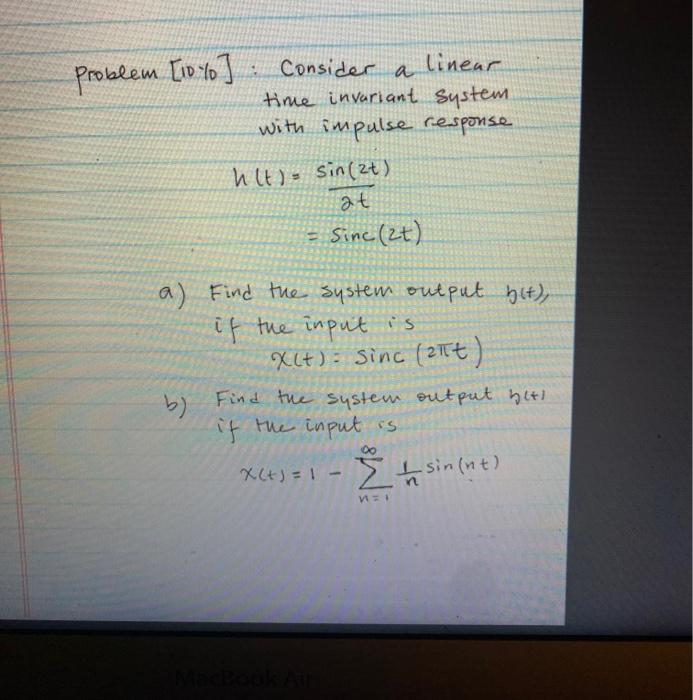 Problem [10%] : Consider a linear
time invariant system
with impulse response
h(t) = sin(2t)
2t
= Sinc(2t)
a) Find the system output y(t),
if the input is
x(t) = Sinc (2πt)
b) Find the system output y(t)
if the input is
x(t) = 1 - ∞ Σ n=1 1/n sin(nt)
MacBook Air